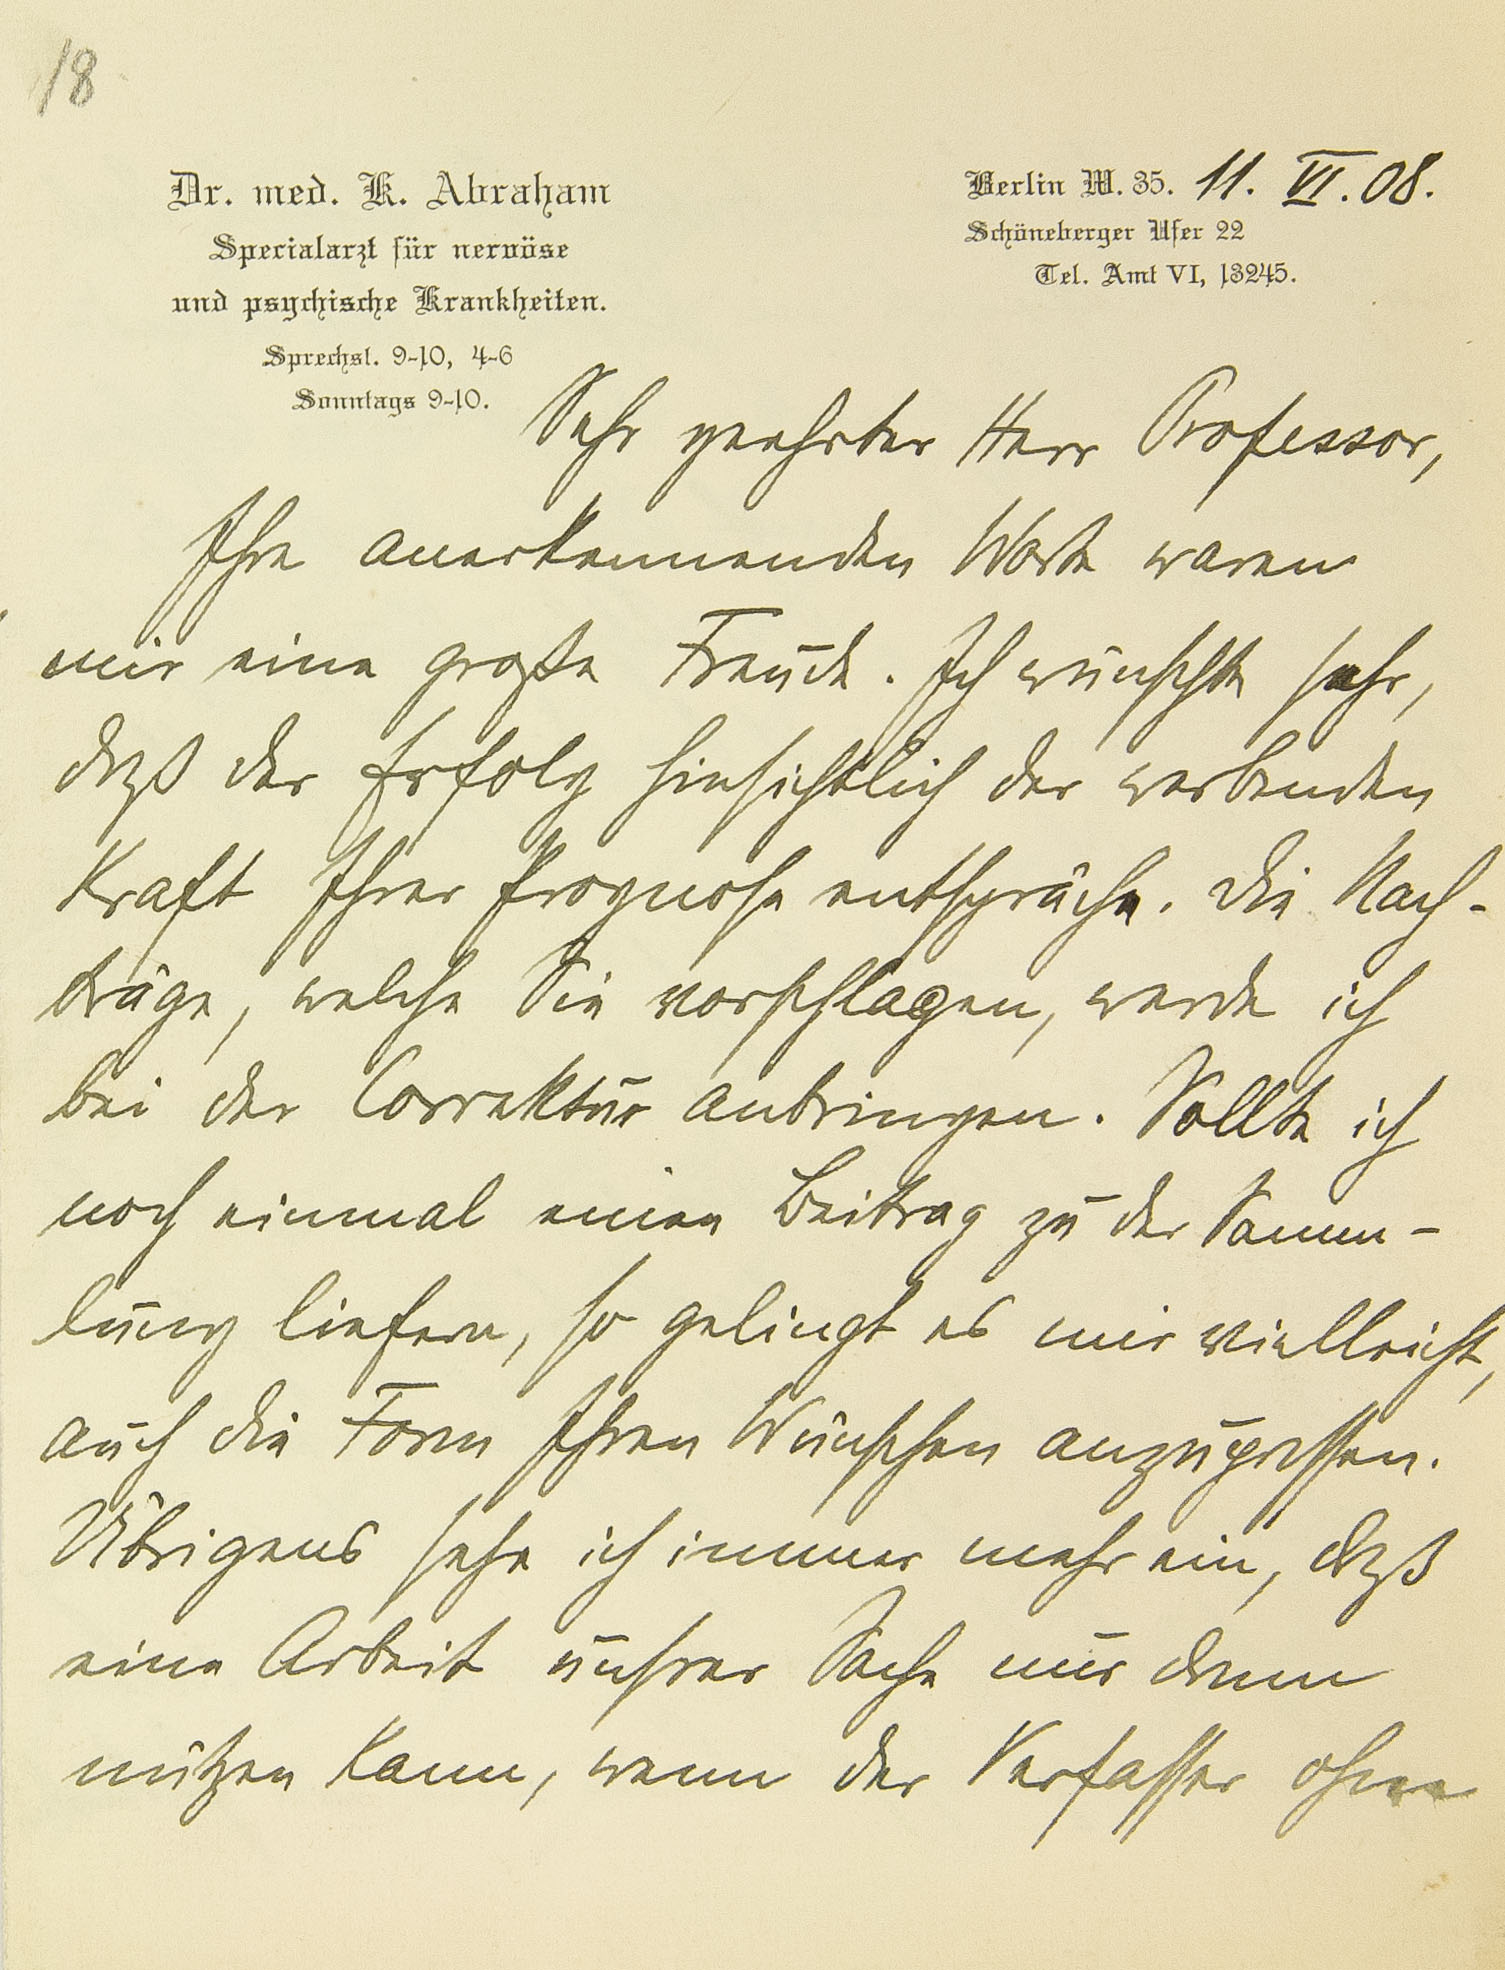 18
Dr. med. K. Abraham
Specialarzt für nervöse
und psychische Krankheiten.
Sprechst. 9-10, 4-6
Sonntags 9-10.
Berlin W. 35. 11. VI. 08.
Schöneberger Ufer 22
Tel. Amt VI, 13245.
Sehr geehrter Herr Professor,
Ihre anerkennenden Worte waren
mir eine große Freude. Ich wünschte sehr,
daß der Erfolg hinsichtlich der werbenden
Kraft Ihrer Prognose entspräche. Die Nach-
träge, welche Sie vorschlagen, werde ich
bei der Correktur anbringen. Sollte ich
noch einmal einen Beitrag zu der Samm-
lung liefern, so gelingt es mir vielleicht,
auch die Form Ihren Wünschen anzupassen.
Übrigens sehe ich immer mehr ein, daß
eine Arbeit unsrer Sache nur dann
nützen kann, wenn der Verfasser ohne